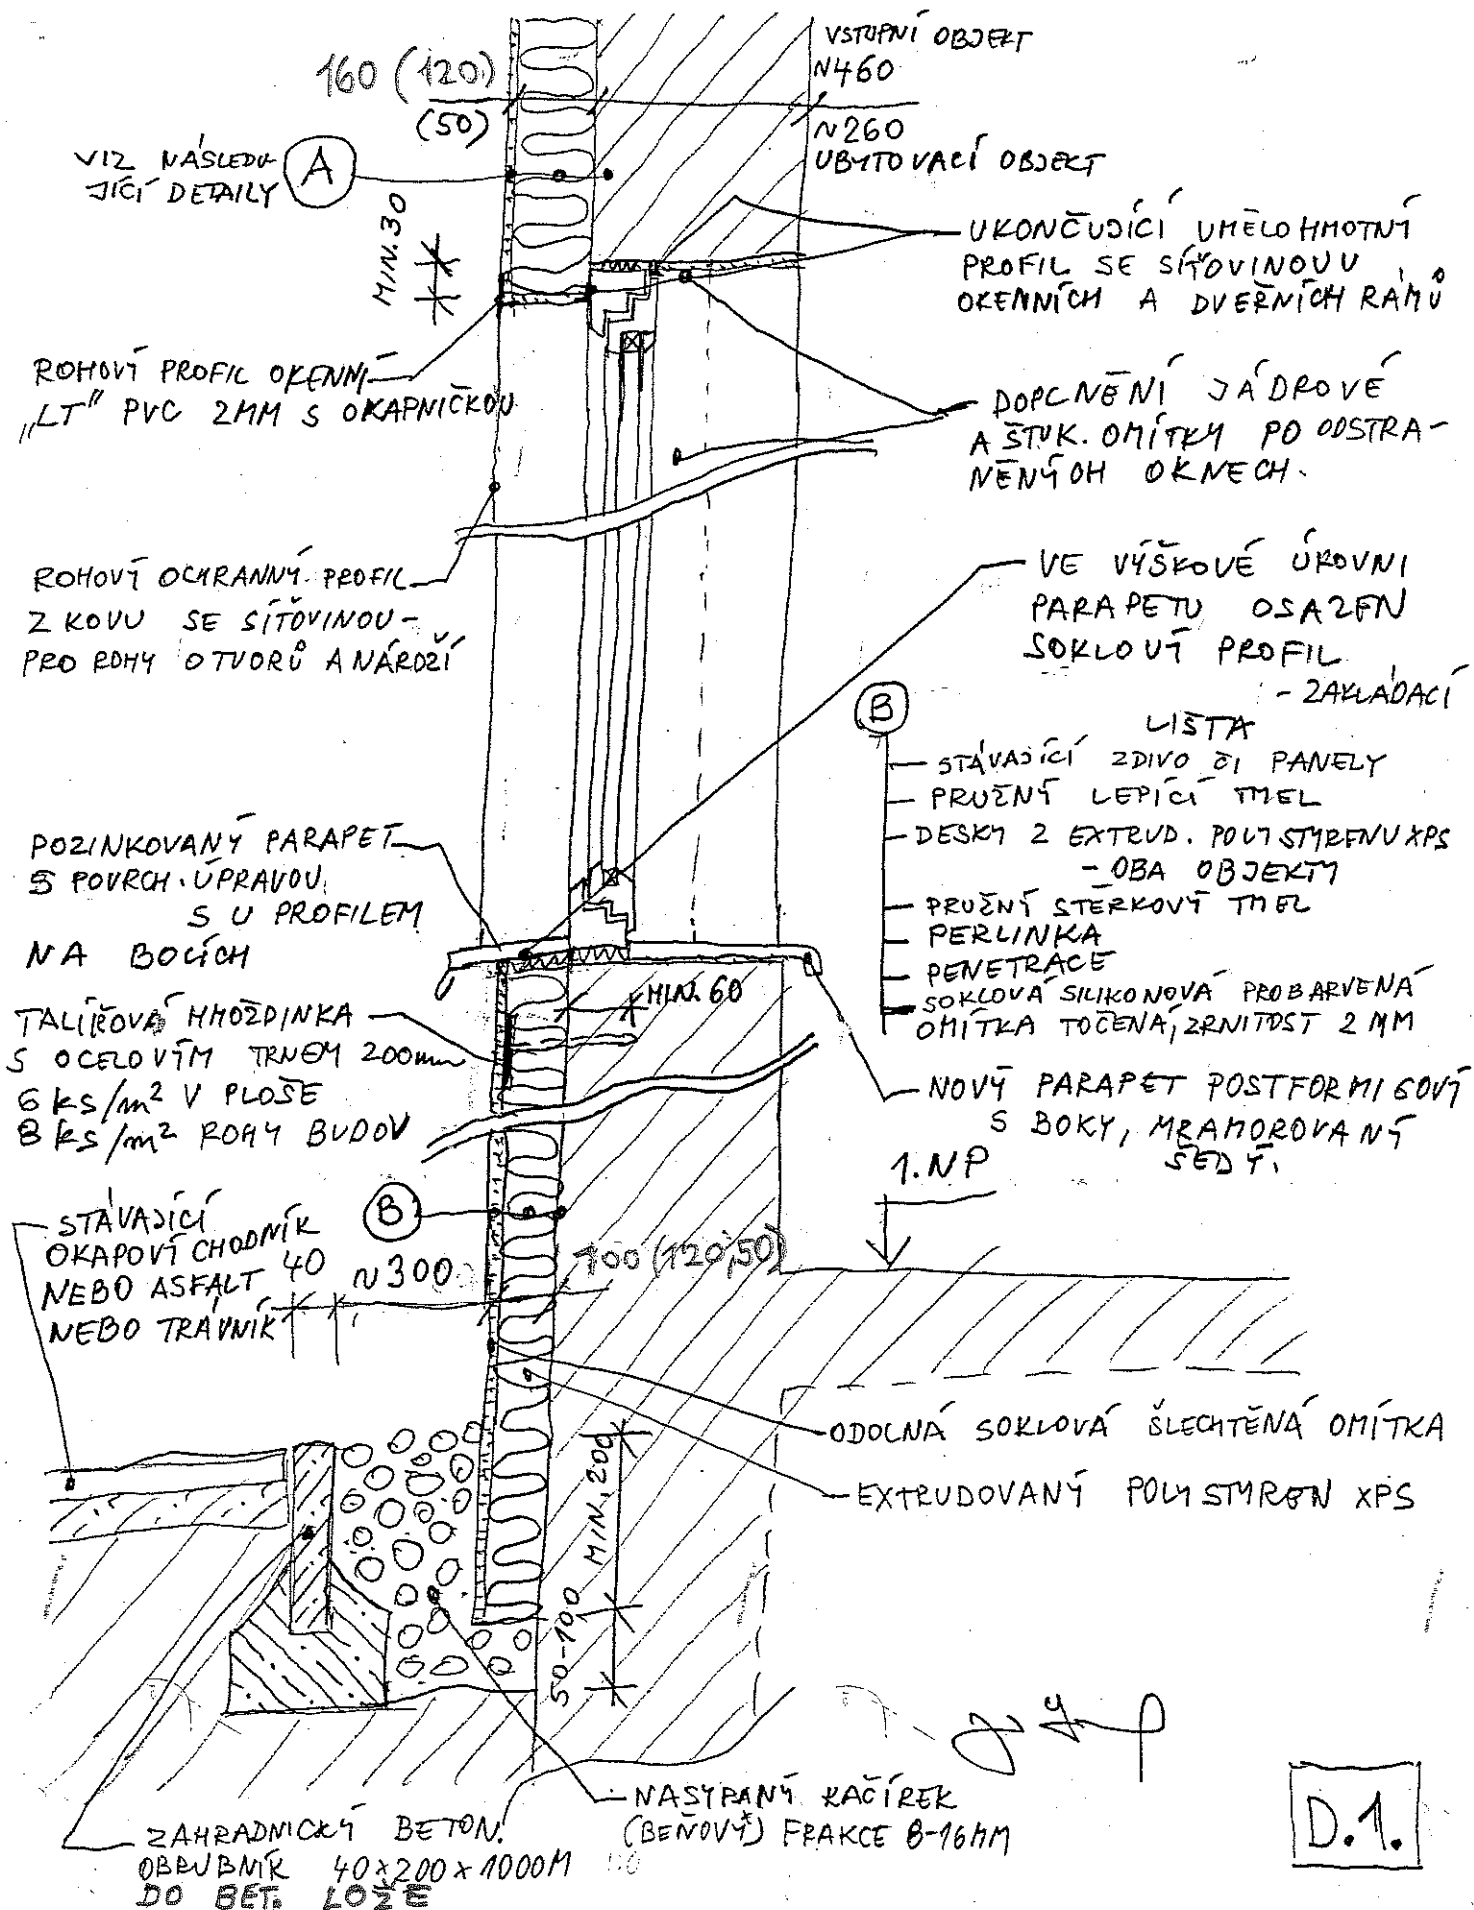 VSTUPNÍ OBJEKT
N460
160 (120)
(50)
N260
UBYTOVACÍ OBJEKT
VIZ NÁSLEDU
JÍCÍ DETAILY
A
MIN.30
UKONČUJÍCÍ UMĚLOHMOTNÝ
PROFIL SE SÍŤOVINOUU
OKENNÍCH A DVEŘNÍCH RÁMŮ
ROHOVÝ PROFIL OKENNÍ
"LT" PVC 2MM S OKAPNIČKOU
DOPLNĚNÍ JÁDROVÉ
A ŠTUK. OMÍTKY PO ODSTRA-
NĚNÝCH OKNECH.
ROHOVÝ OCHRANNÝ PROFIL
Z KOVU SE SÍŤOVINOU-
PRO ROHY OTVORŮ A NÁROŽÍ
VE VÝŠKOVÉ ÚROVNI
PARAPETU OSAZEN
SOKLOVÝ PROFIL
- ZAKLÁDACÍ
LIŠTA
B
STÁVAJÍCÍ ZDIVO ČI PANELY
PRUŽNÝ LEPÍCÍ TMEL
DESKY Z EXTRUD. POLYSTYRENU XPS
- OBA OBJEKTY
PRUŽNÝ STĚRKOVÝ TMEL
PERLINKA
PENETRACE
SOKLOVÁ SILIKONOVÁ PROBARVENÁ
OMÍTKA TOČENÁ, ZRNITOST 2 MM
POZINKOVANÝ PARAPET
S POVRCH. ÚPRAVOU
S U PROFILEM
NA BOCÍCH
MIN. 60
TALÍŘOVÁ HMOŽDINKA
S OCELOVÝM TRNEM 200mm
6 ks/m² V PLOŠE
8 ks/m² ROHY BUDOV
NOVÝ PARAPET POSTFORMIGOVÝ
S BOKY, MRAMOROVANÝ
ŠEDÝ.
1.NP
STÁVAJÍCÍ
OKAPOVÝ CHODNÍK
NEBO ASFALT
NEBO TRÁVNÍK
B
40
N300
100 (120,50)
ODOLNÁ SOKLOVÁ ŠLECHTĚNÁ OMÍTKA
EXTRUDOVANÝ POLYSTYREN XPS
MIN. 200
50-100
NASYPANÝ KAČÍREK
(BEŇOVÝ) FRAKCE 8-16MM
ZAHRADNICKÝ BETON.
OBRUBNÍK 40x200x1000M
DO BET. LOŽE
D.1.